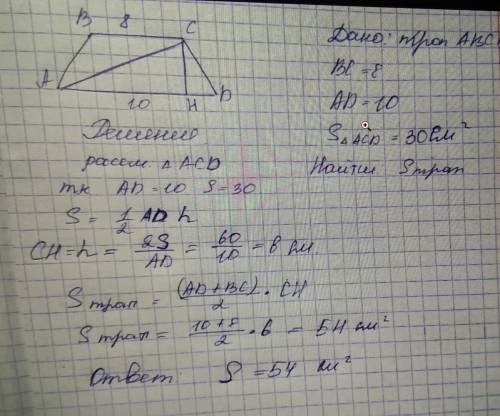 B 8 C
A 10 H D
Дано: трап ABC
BC = 8
AD = 10
S△ACD = 30 см²
Найти Sтрап
Решение
рассм △ ACD
тк AD = 10 S = 30
S = 1/2 AD h
CH = h = 2S/AD = 60/10 = 6 см
Sтрап = (AD+BC)/2 · CH
Sтрап = 10+8/2 · 6 = 54 см²
Ответ: S = 54 см²